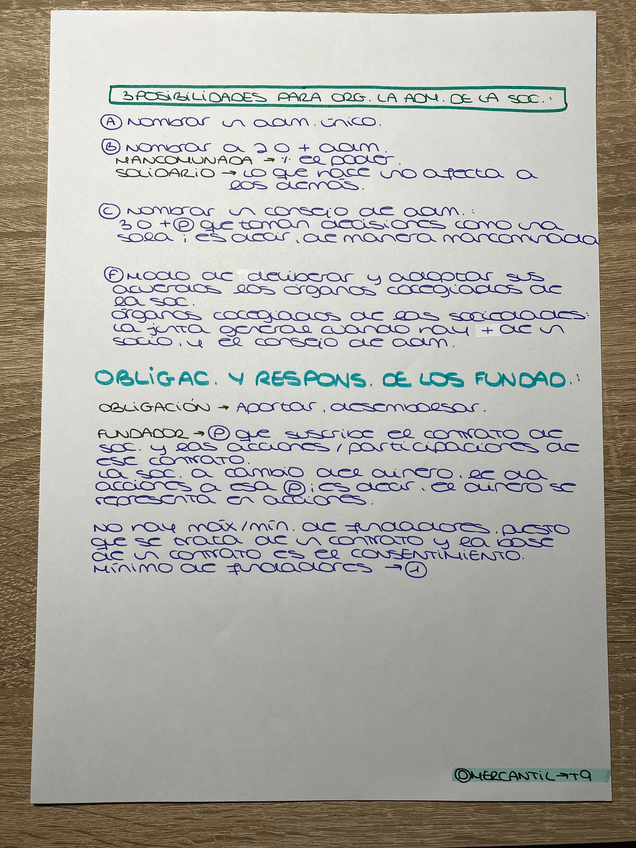 3 POSIBILIDADES PARA ORG. LA ADM. DE LA SOC.:
Ⓐ Nombrar un adm. único.
Ⓑ Nombrar a 2 o + adm.
MANCOMUNADA → % el poder.
SOLIDARIO → Lo que hace uno afecta a
los demás.
Ⓒ Nombrar un consejo de adm.:
3 o + Ⓟ que toman decisiones como una
sola; es decir, de manera mancomunada
Ⓕ Modo de deliberar y adoptar sus
acuerdos los órganos colegiados de
la soc.
Órganos colegiados de las sociedades:
La junta general cuando hay + de un
socio, y el consejo de adm.
OBLIGAC. Y RESPONS. DE LOS FUNDAD.:
OBLIGACIÓN → Aportar, desembolsar.
FUNDADOR → Ⓟ que suscribe el contrato de
soc. y las acciones/participaciones de
ese contrato.
La soc. a cambio del dinero, le da
acciones a esa Ⓟ; es decir, el dinero se
representa en acciones.
No hay máx/mín. de fundadores, puesto
que se trata de un contrato y la base
de un contrato es el CONSENTIMIENTO.
Mínimo de fundadores → ①
ⒹMERCANTIL→T9